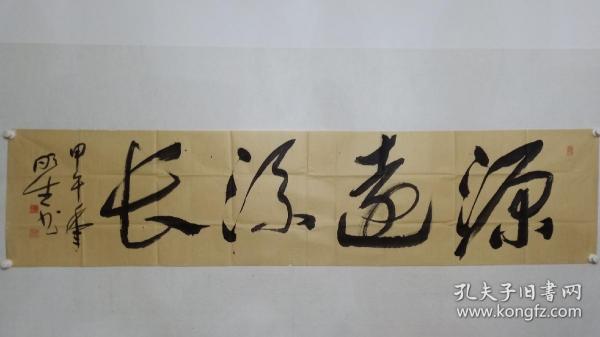 源远流长
甲午年
明生书
孔夫子旧書网
www.kongfz.com